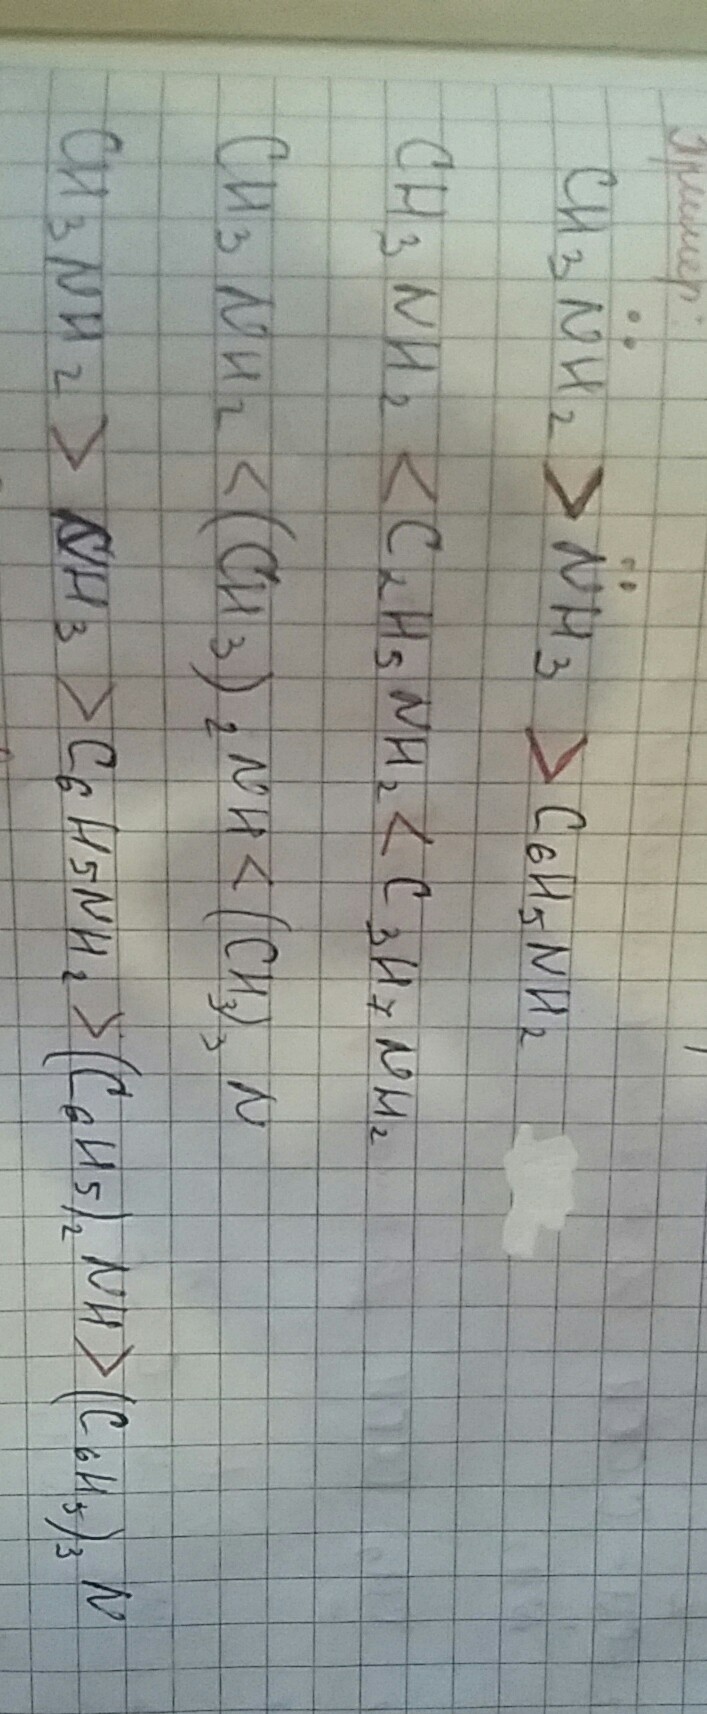 Пример:
CH₃N̈H₂ > N̈H₃ > C₆H₅NH₂
CH₃NH₂ < C₂H₅NH₂ < C₃H₇NH₂
CH₃NH₂ < (CH₃)₂NH < (CH₃)₃N
CH₃NH₂ > NH₃ > C₆H₅NH₂ > (C₆H₅)₂NH > (C₆H₅)₃N